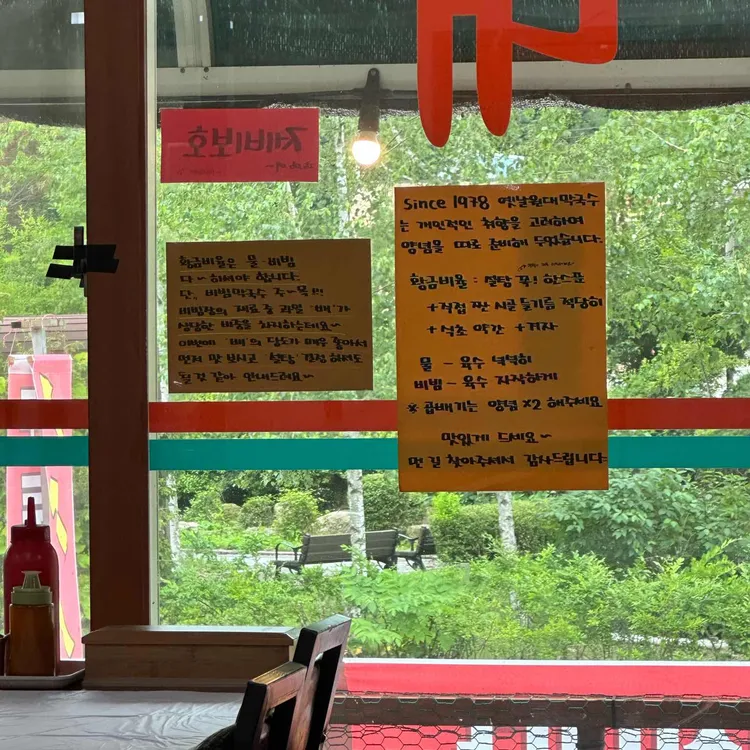 Since 1978 옛날원대막국수
는 개인적인 취향을 고려하여
양념을 따로 준비해 두었습니다.
황금비율 : 설탕 푹! 한스푼
+직접 짠 시골 들기름 적당히
+식초 약간 +겨자
물 - 육수 넉넉히
비빔 - 육수 자작하게
※ 곱배기는 양념 X2 해주세요
맛있게 드세요~
먼 길 찾아주셔서 감사드립니다.
황금비율은 물·비빔
다~ 하셔야 합니다.
단, 비빔막국수 주~목!!
비빔장의 재료 중 과일 '배'가
상당한 비중을 차지하는데요~
이번에 '배'의 당도가 매우 좋아서
먼저 맛 보시고 설탕 걱정 하셔도
될 것 같아 안내드려요~
제비보호